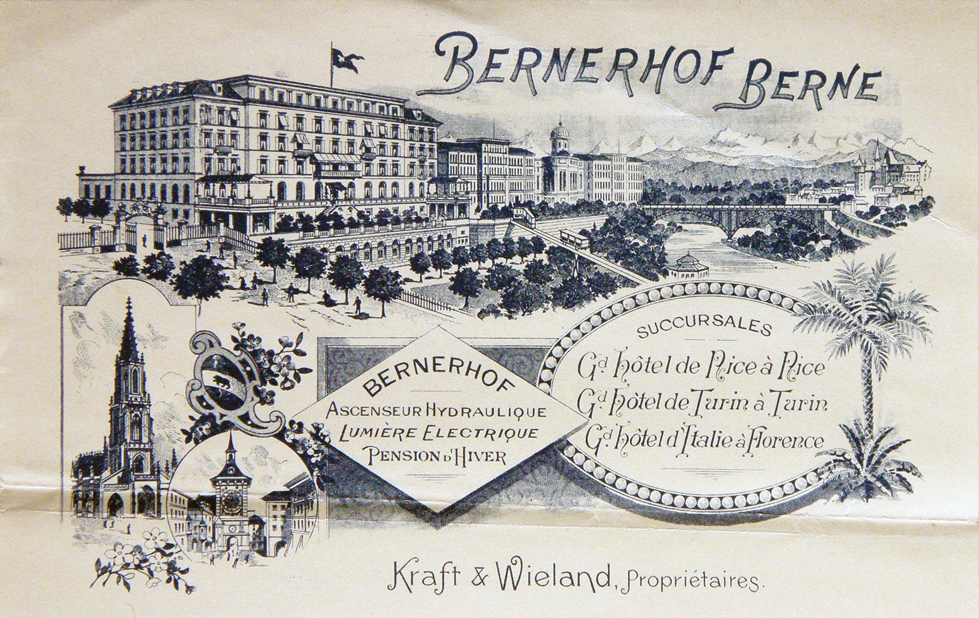 BERNERHOF BERNE
BERNERHOF
ASCENSEUR HYDRAULIQUE
LUMIÈRE ELECTRIQUE
PENSION D'HIVER
SUCCURSALES
Gd. hôtel de Nice à Nice
Gd. hôtel de Turin à Turin
Gd. hôtel d'Italie à Florence
Kraft & Wieland, Propriétaires.